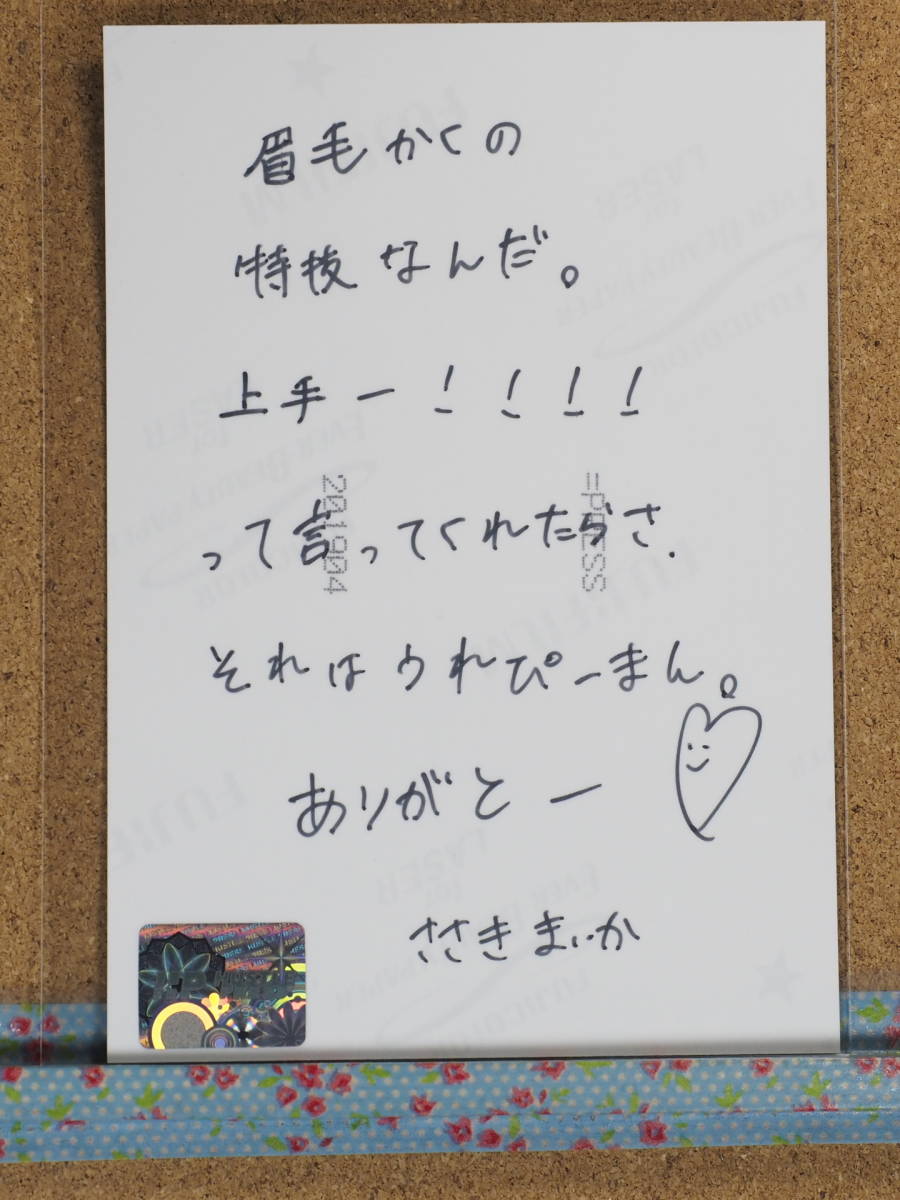 眉毛かくの
特技なんだ。
上手ー！！！！
って言ってくれたらさ.
201904
=PRESS
それはうれぴーまん。
ありがとー
ささきまいか